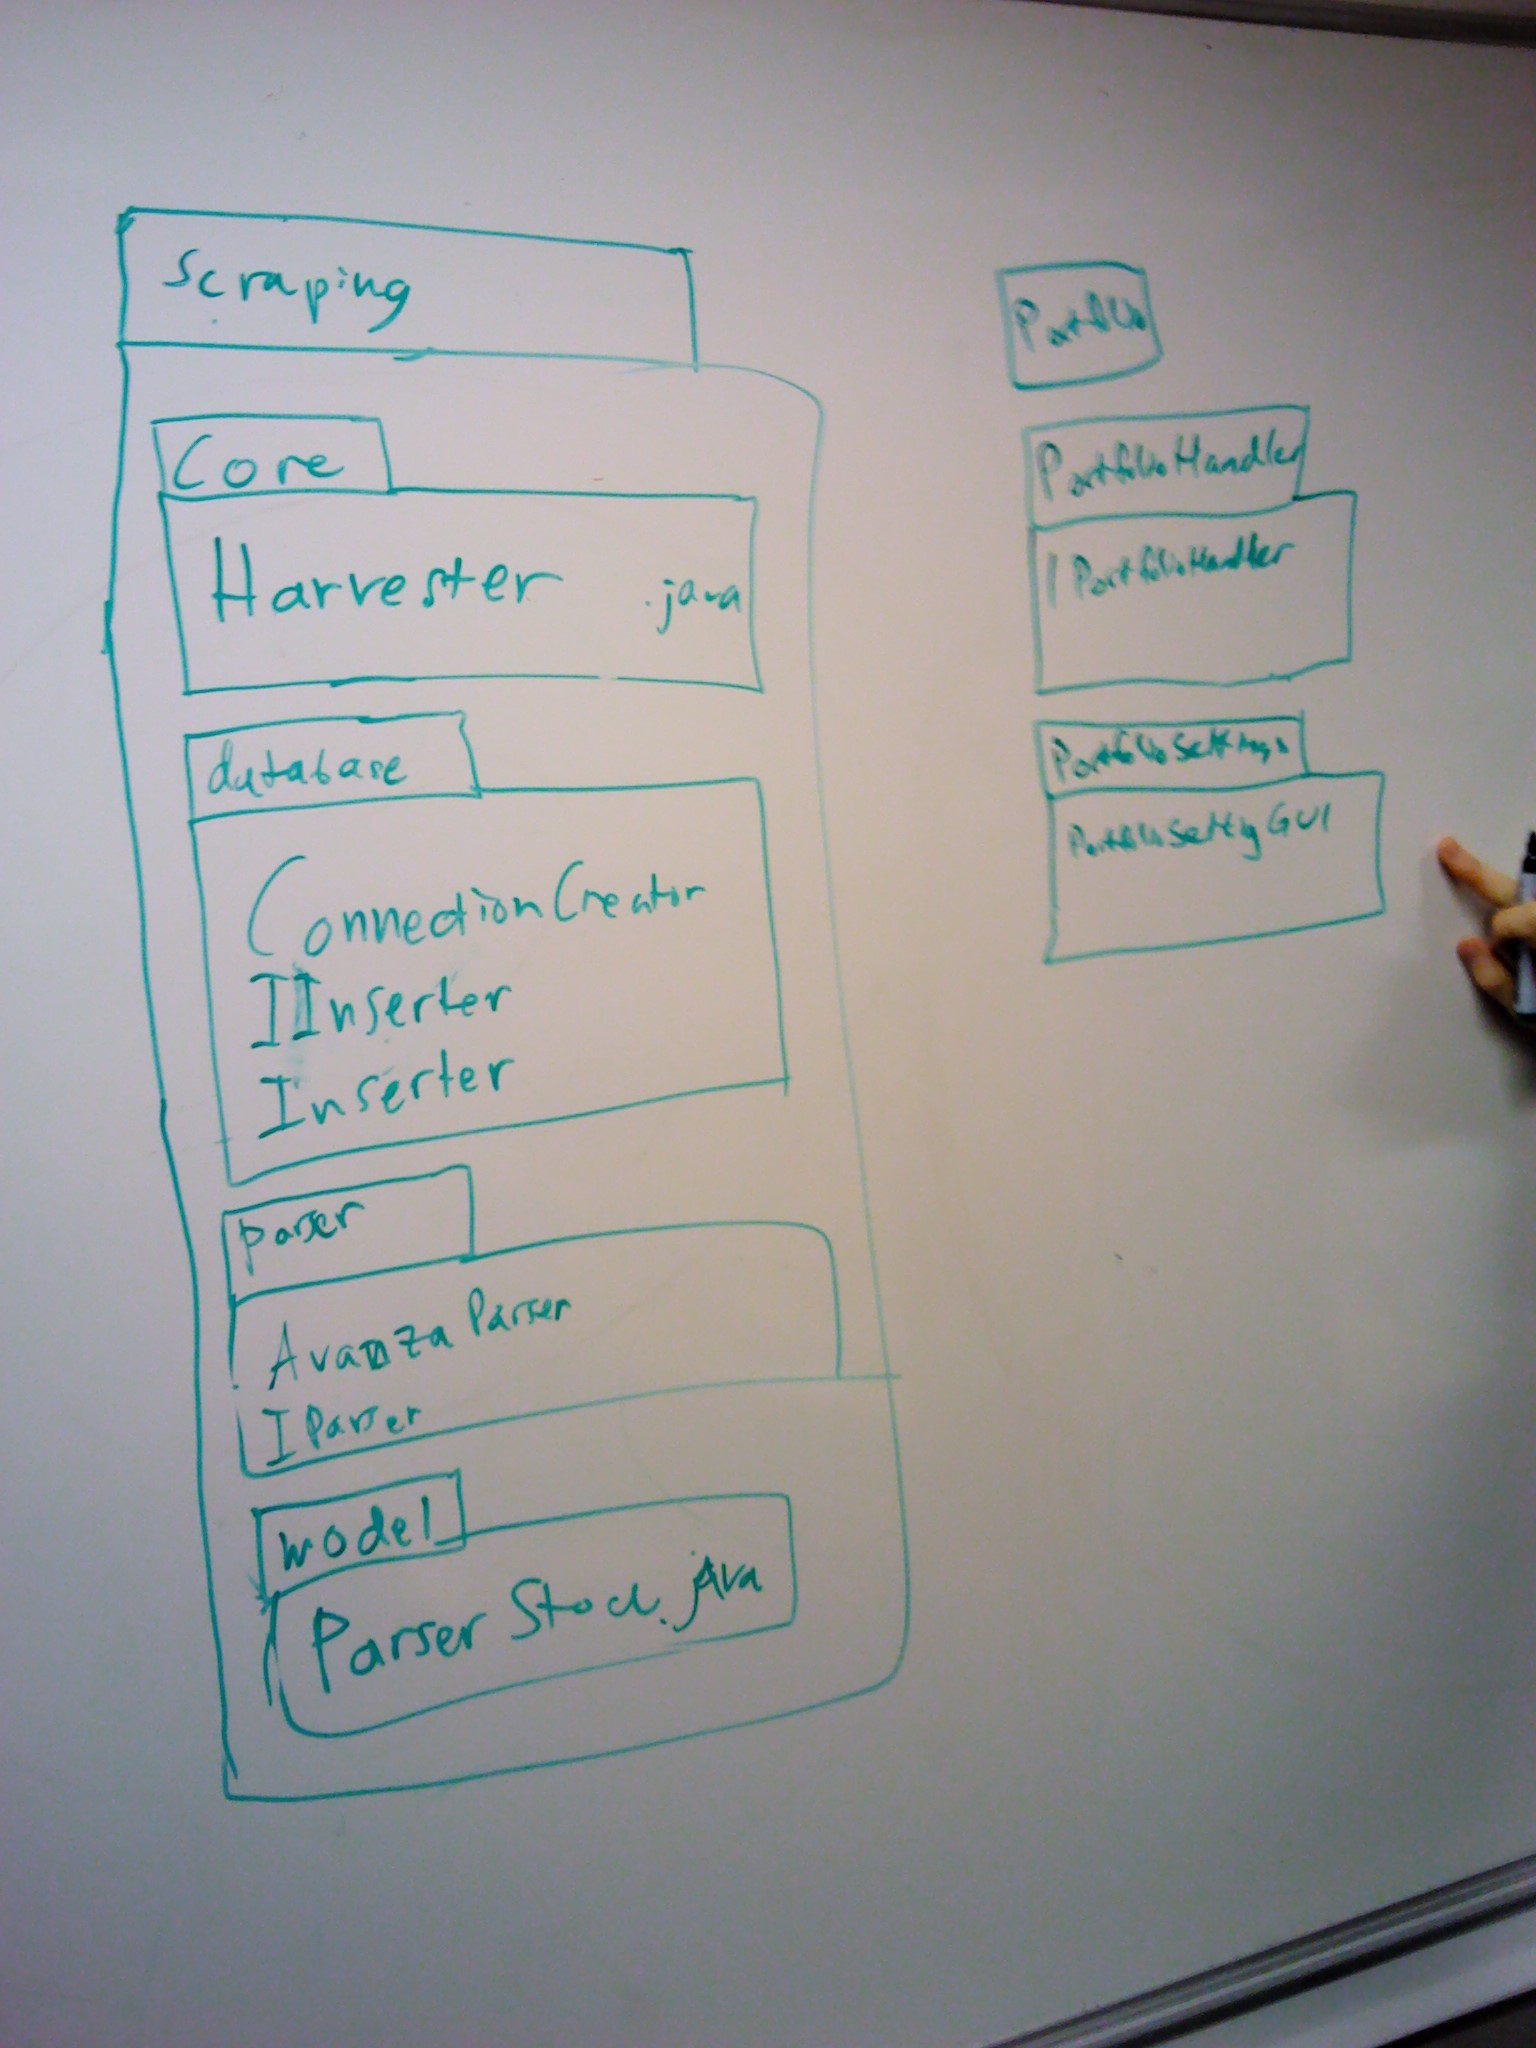 Scraping
Core
Harvester .java
database
ConnectionCreator
IInserter
Inserter
parser
AvanzaParser
IParser
model
Parser Stock.java
Portfolio
PortfolioHandler
IPortfolioHandler
PortfolioSettings
PortfolioSettingGUI